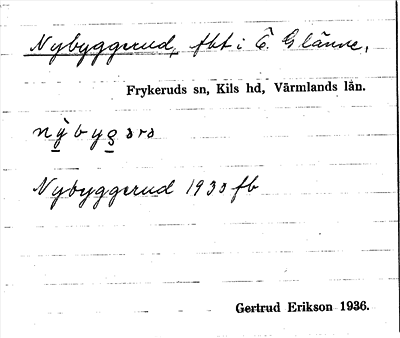 Nybyggerud, fbt i Ö. Glänne,
Frykeruds sn, Kils hd, Värmlands län.
Nybyggerud 1930 fb
Gertrud Erikson 1936.